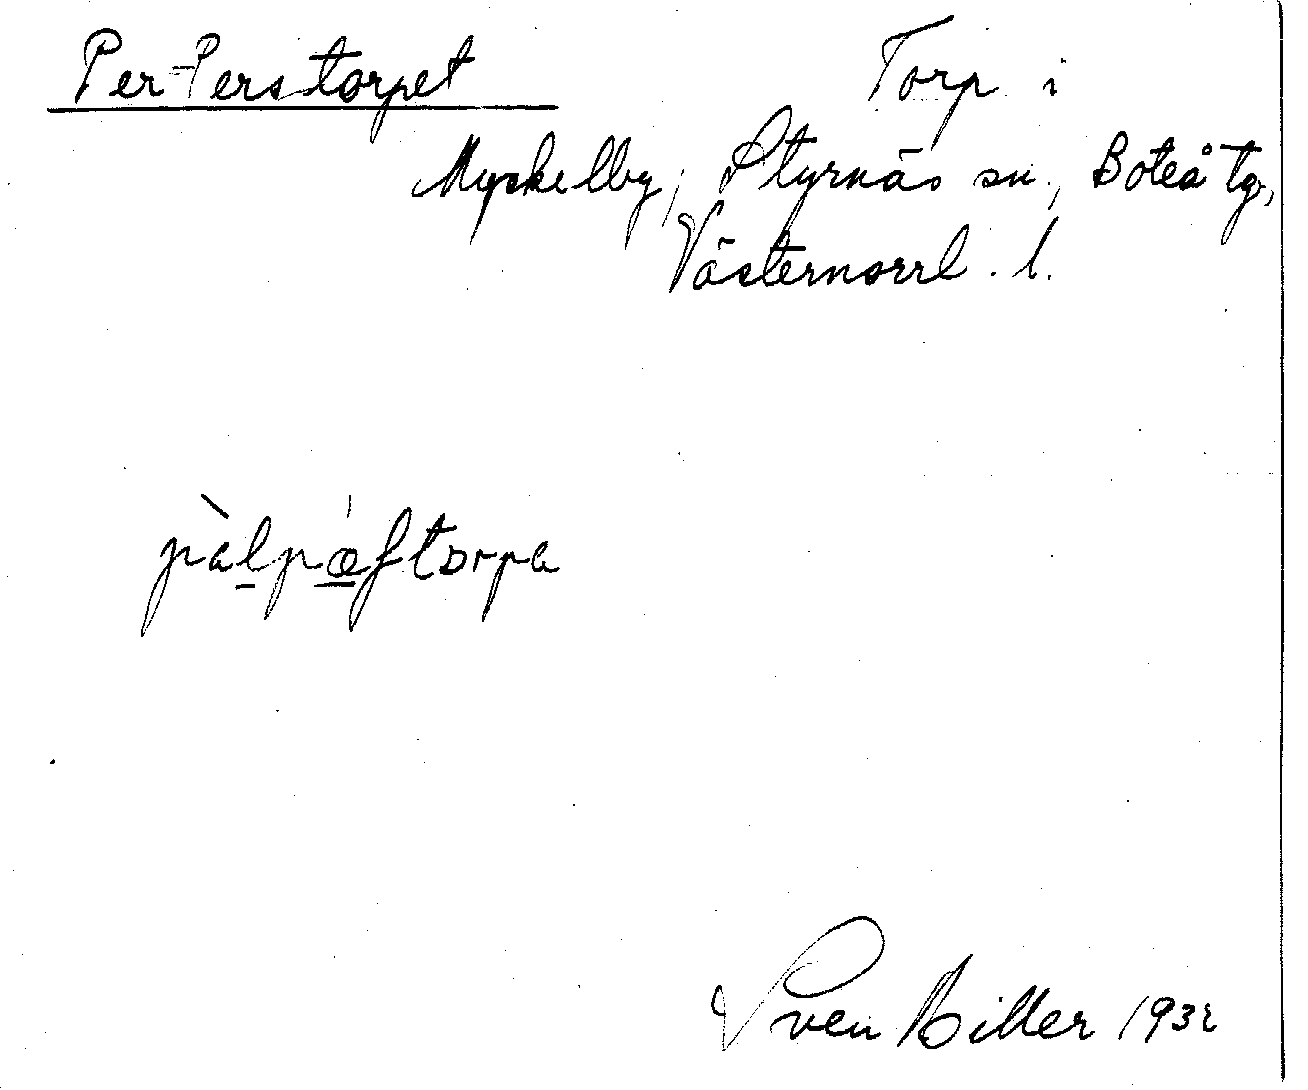 Per-Perstorpet Torp i
Myckelby, Styrnäs sn., Boteå tg.,
Västernorrl. l.
pàlpǽʃtɔrpa
Sven Biller 1932